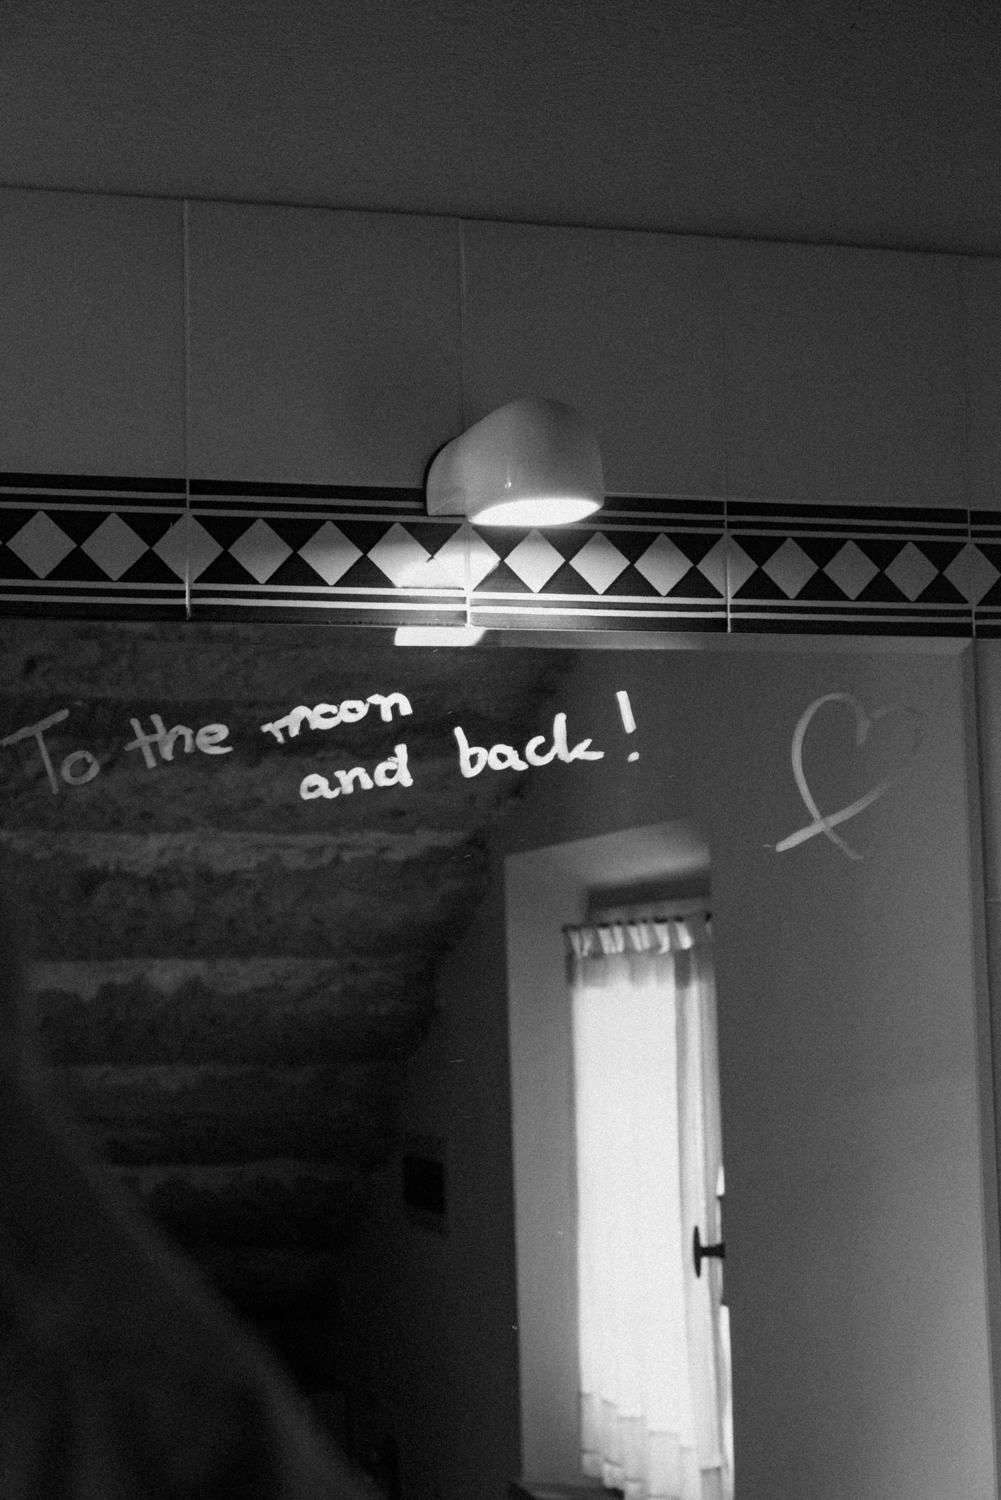 To the moon
and back!